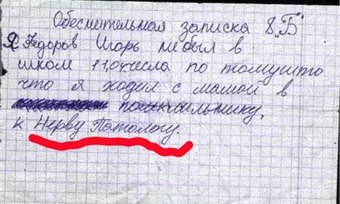 Обеснительная записка 8„Б"
Я Федоров Игорь не был в
школ 11,окчесла по томушто
что я ходил с мамой в
к Нерву Патологу.